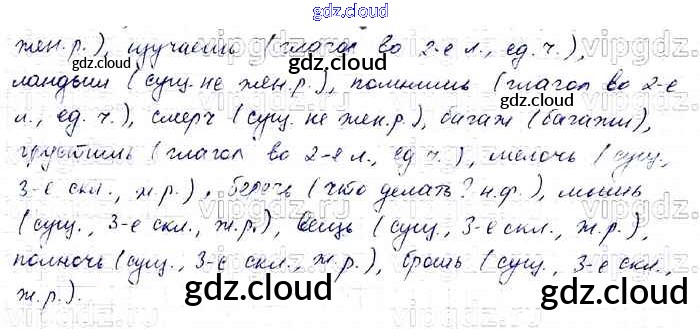 gdz.cloud
жен.р.), изучаешь (глагол во 2-е л., ед.ч.),
ландыш (сущ. не жен.р.), помнишь (глагол во 2-е
л., ед.ч.), смерч (сущ. не жен.р.), багаж (багажи),
грустишь (глагол во 2-е л., ед.ч.), мелочь (сущ.,
3-е скл., ж.р.), беречь (что делать? н.ф.), мышь
(сущ., 3-е скл., ж.р.), вещь (сущ., 3-е скл., ж.р.),
полночь (сущ., 3-е скл., ж.р.), брошь (сущ., 3-е скл.,
ж.р.).
gdz.cloud
gdz.cloud